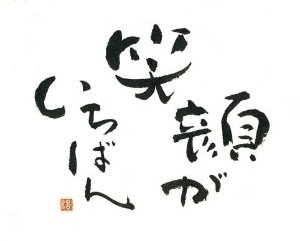 笑顔が
いちばん